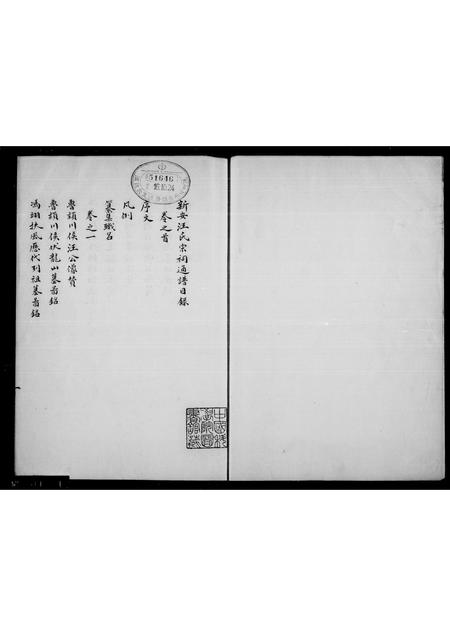 新安汪氏宗祠通譜目錄
卷之首
序文
凡例
纂集職名
卷之一
魯潁川侯汪公像贊
魯潁川侯伏龍山墓誌銘
馮翊扶風歷代列祖墓誌銘
51646